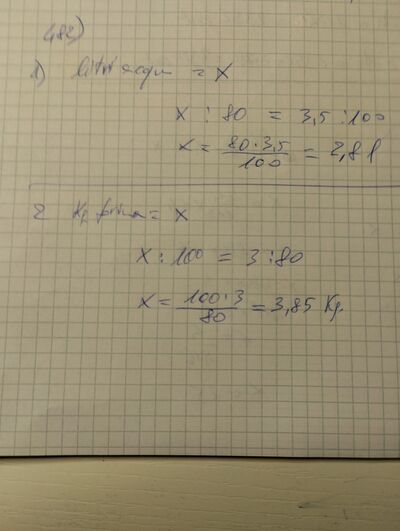 482)
1) litri acqua = X
X : 80 = 3,5 : 100
X = 80 · 3,5 / 100 = 2,8 l
2 Kg farina = X
X : 100 = 3 : 80
X = 100 · 3 / 80 = 3,85 Kg.